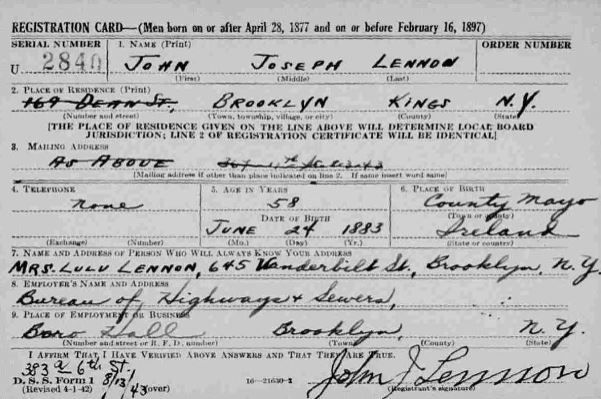 REGISTRATION CARD—(Men born on or after April 28, 1877 and on or before February 16, 1897)
SERIAL NUMBER 1. NAME (Print) ORDER NUMBER
U 2840 JOHN JOSEPH LENNON
(First) (Middle) (Last)
2. PLACE OF RESIDENCE (Print)
169 DEAN ST, BROOKLYN KINGS N.Y.
(Number and street) (Town, township, village, or city) (County) (State)
[THE PLACE OF RESIDENCE GIVEN ON THE LINE ABOVE WILL DETERMINE LOCAL BOARD
JURISDICTION; LINE 2 OF REGISTRATION CERTIFICATE WILL BE IDENTICAL]
3. MAILING ADDRESS
AS ABOVE
(Mailing address if other than place indicated on line 2. If same insert word same)
4. TELEPHONE 5. AGE IN YEARS 6. PLACE OF BIRTH
none 58 County Mayo
DATE OF BIRTH (Town or county)
JUNE 24 1883 Ireland
(Exchange) (Number) (Mo.) (Day) (Yr.) (State or country)
7. NAME AND ADDRESS OF PERSON WHO WILL ALWAYS KNOW YOUR ADDRESS
MRS. LULU LENNON, 645 Vanderbilt St., Brooklyn, N.Y.
8. EMPLOYER'S NAME AND ADDRESS
Bureau of Highways & Sewers,
9. PLACE OF EMPLOYMENT OR BUSINESS
Boro Hall Brooklyn, N.Y.
(Number and street or R. F. D. number) (Town) (County) (State)
I AFFIRM THAT I HAVE VERIFIED ABOVE ANSWERS AND THAT THEY ARE TRUE.
383 a 6th St.
D. S. S. Form 1 8/13/43 (over) 16—21630-2 John J Lennon
(Revised 4-1-42) (Registrant's signature)